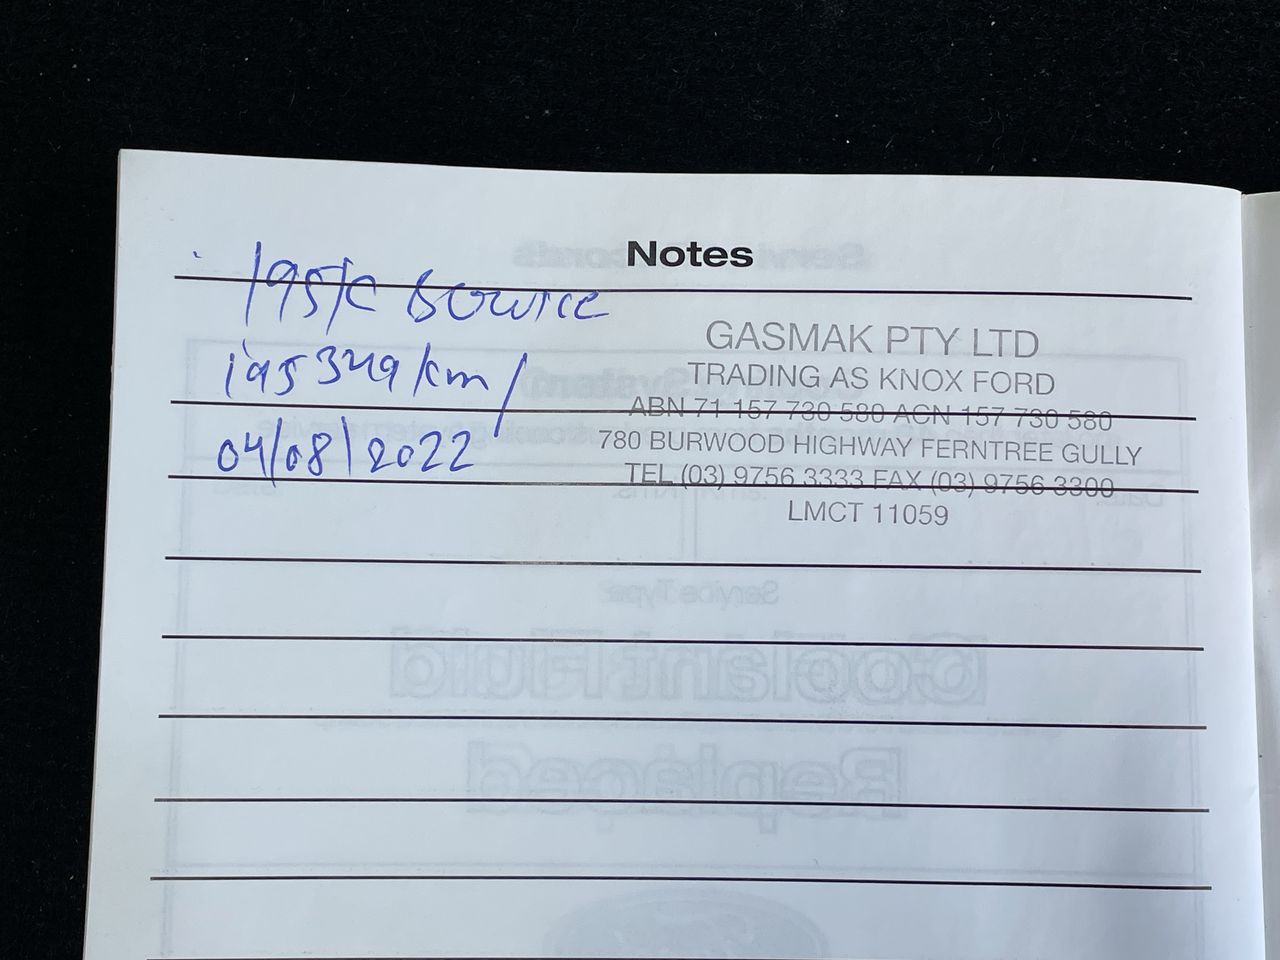 Notes
195K Service
195349 km /
04/08/2022
GASMAK PTY LTD
TRADING AS KNOX FORD
ABN 71 157 730 580 ACN 157 730 580
780 BURWOOD HIGHWAY FERNTREE GULLY
TEL (03) 9756 3333 FAX (03) 9756 3300
LMCT 11059
Service Type
Coolant Fluid
Replaced